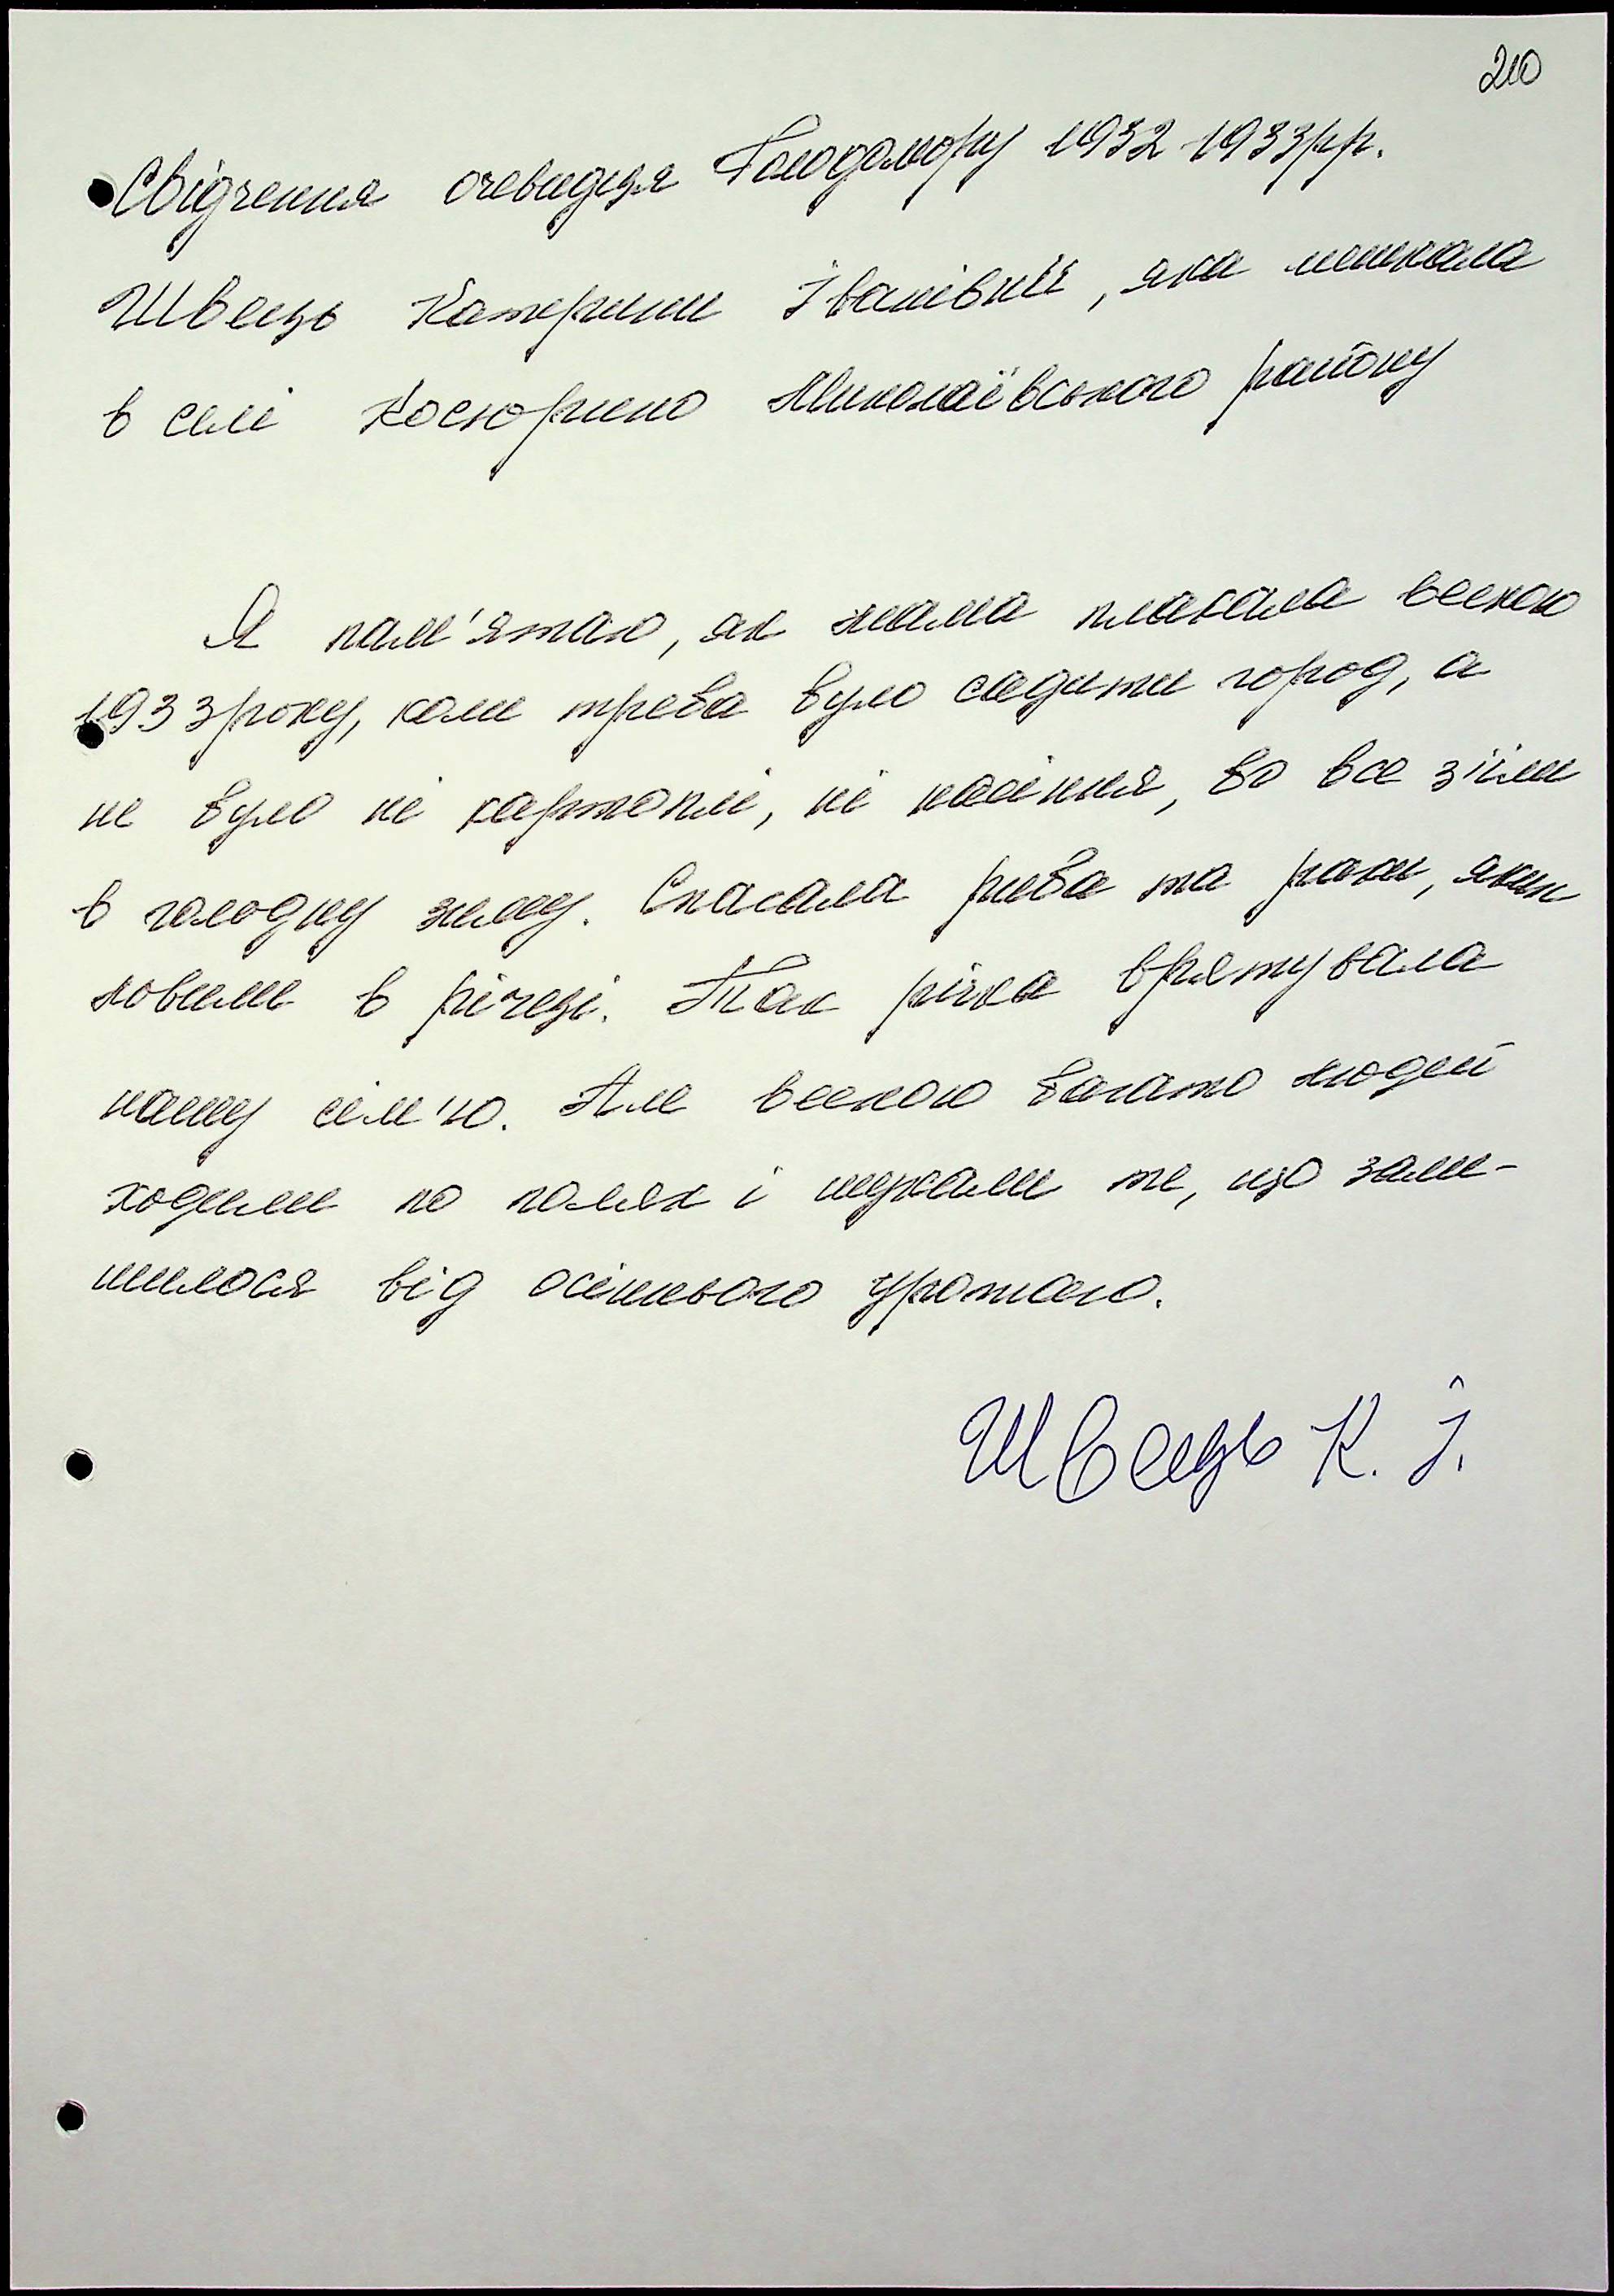 210
Свідчення очевидця Голодомору 1932-1933рр.
Швець Катерини Іванівни, яка мешкала
в селі Косюрино Миколаївського району
Я пам'ятаю, як мама плакала весною
1933року, коли треба було садити город, а
не було ні картоплі, ні насіння, бо все з'їли
в голодну зиму. Спасала риба та раки, яких
ловили в річці. Так річка врятувала
нашу сім'ю. Але весною багато людей
ходили по полях і шукали те, що зали-
шилося від осіннього урожаю.
Швець К. І.